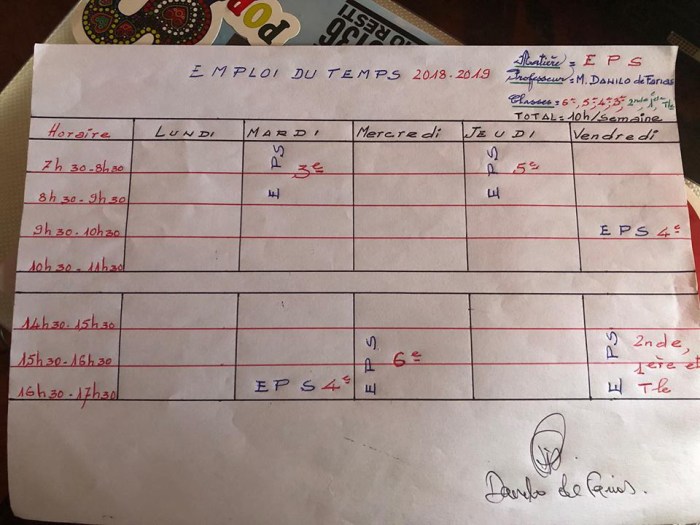 POP
5136
ORESTI
EMPLOI DU TEMPS 2018-2019
Matière = EPS
Professeur = M. Danilo de Farias
Classes = 6e, 5e, 4e, 3e, 2nde, 1ere, Tle
TOTAL = 10h/Semaine
Horaire LUNDI MARDI Mercredi JEUDI Vendredi
7h30-8h30 EPS 3e EPS 5e
8h30-9h30
9h30-10h30 EPS 4e
10h30-11h30
14h30-15h30
15h30-16h30 EPS 6e EPS 2nde, 1ère et Tle
16h30-17h30 EPS 4e
Danilo de Farias.